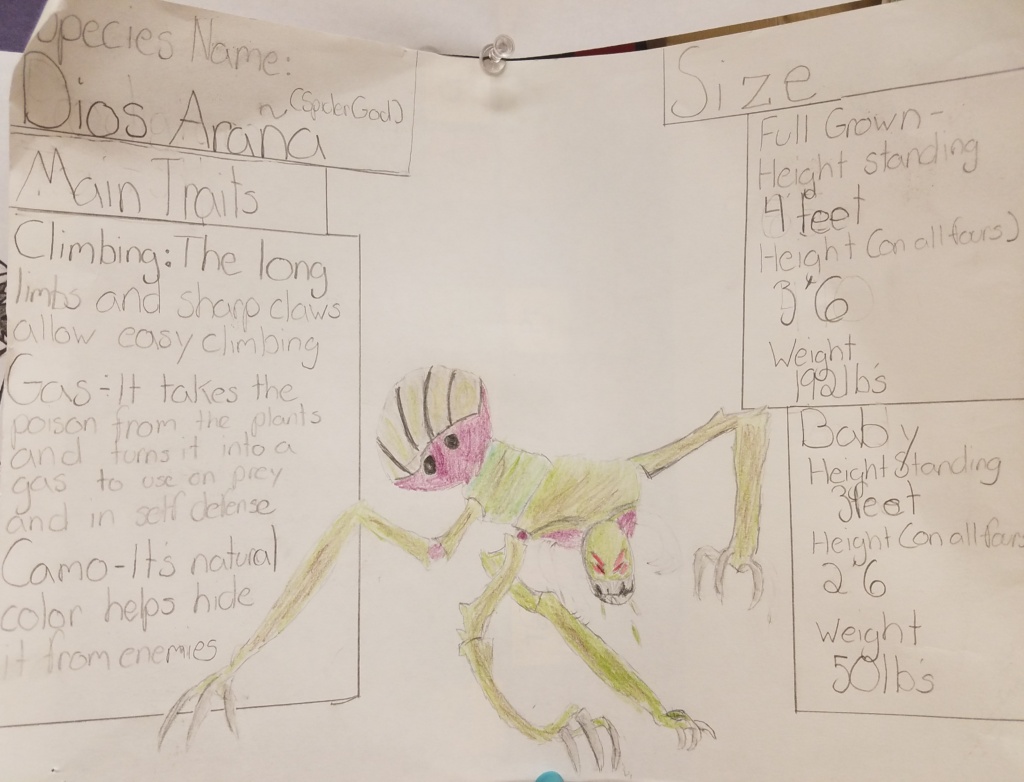 Species Name:
Dios Araña (Spider God)
Main Traits
Climbing: The long
limbs and sharp claws
allow easy climbing
Gas-It takes the
poison from the plants
and turns it into a
gas to use on prey
and in self defense
Camo-It's natural
color helps hide
it from enemies
Size
Full Grown-
Height standing
4 feet
Height (on all fours)
3"6
Weight
192 lb's
Baby
Height Standing
3 feet
Height (on all fours
2"6
Weight
50 lb's